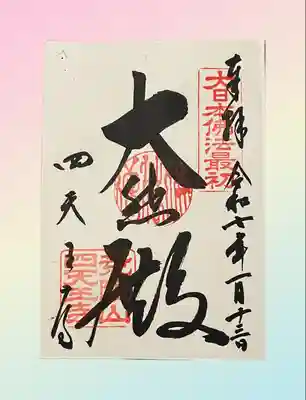 奉拝 令和七年一月十三日
大日本佛法最初
大悲殿
四天王寺
四天王寺